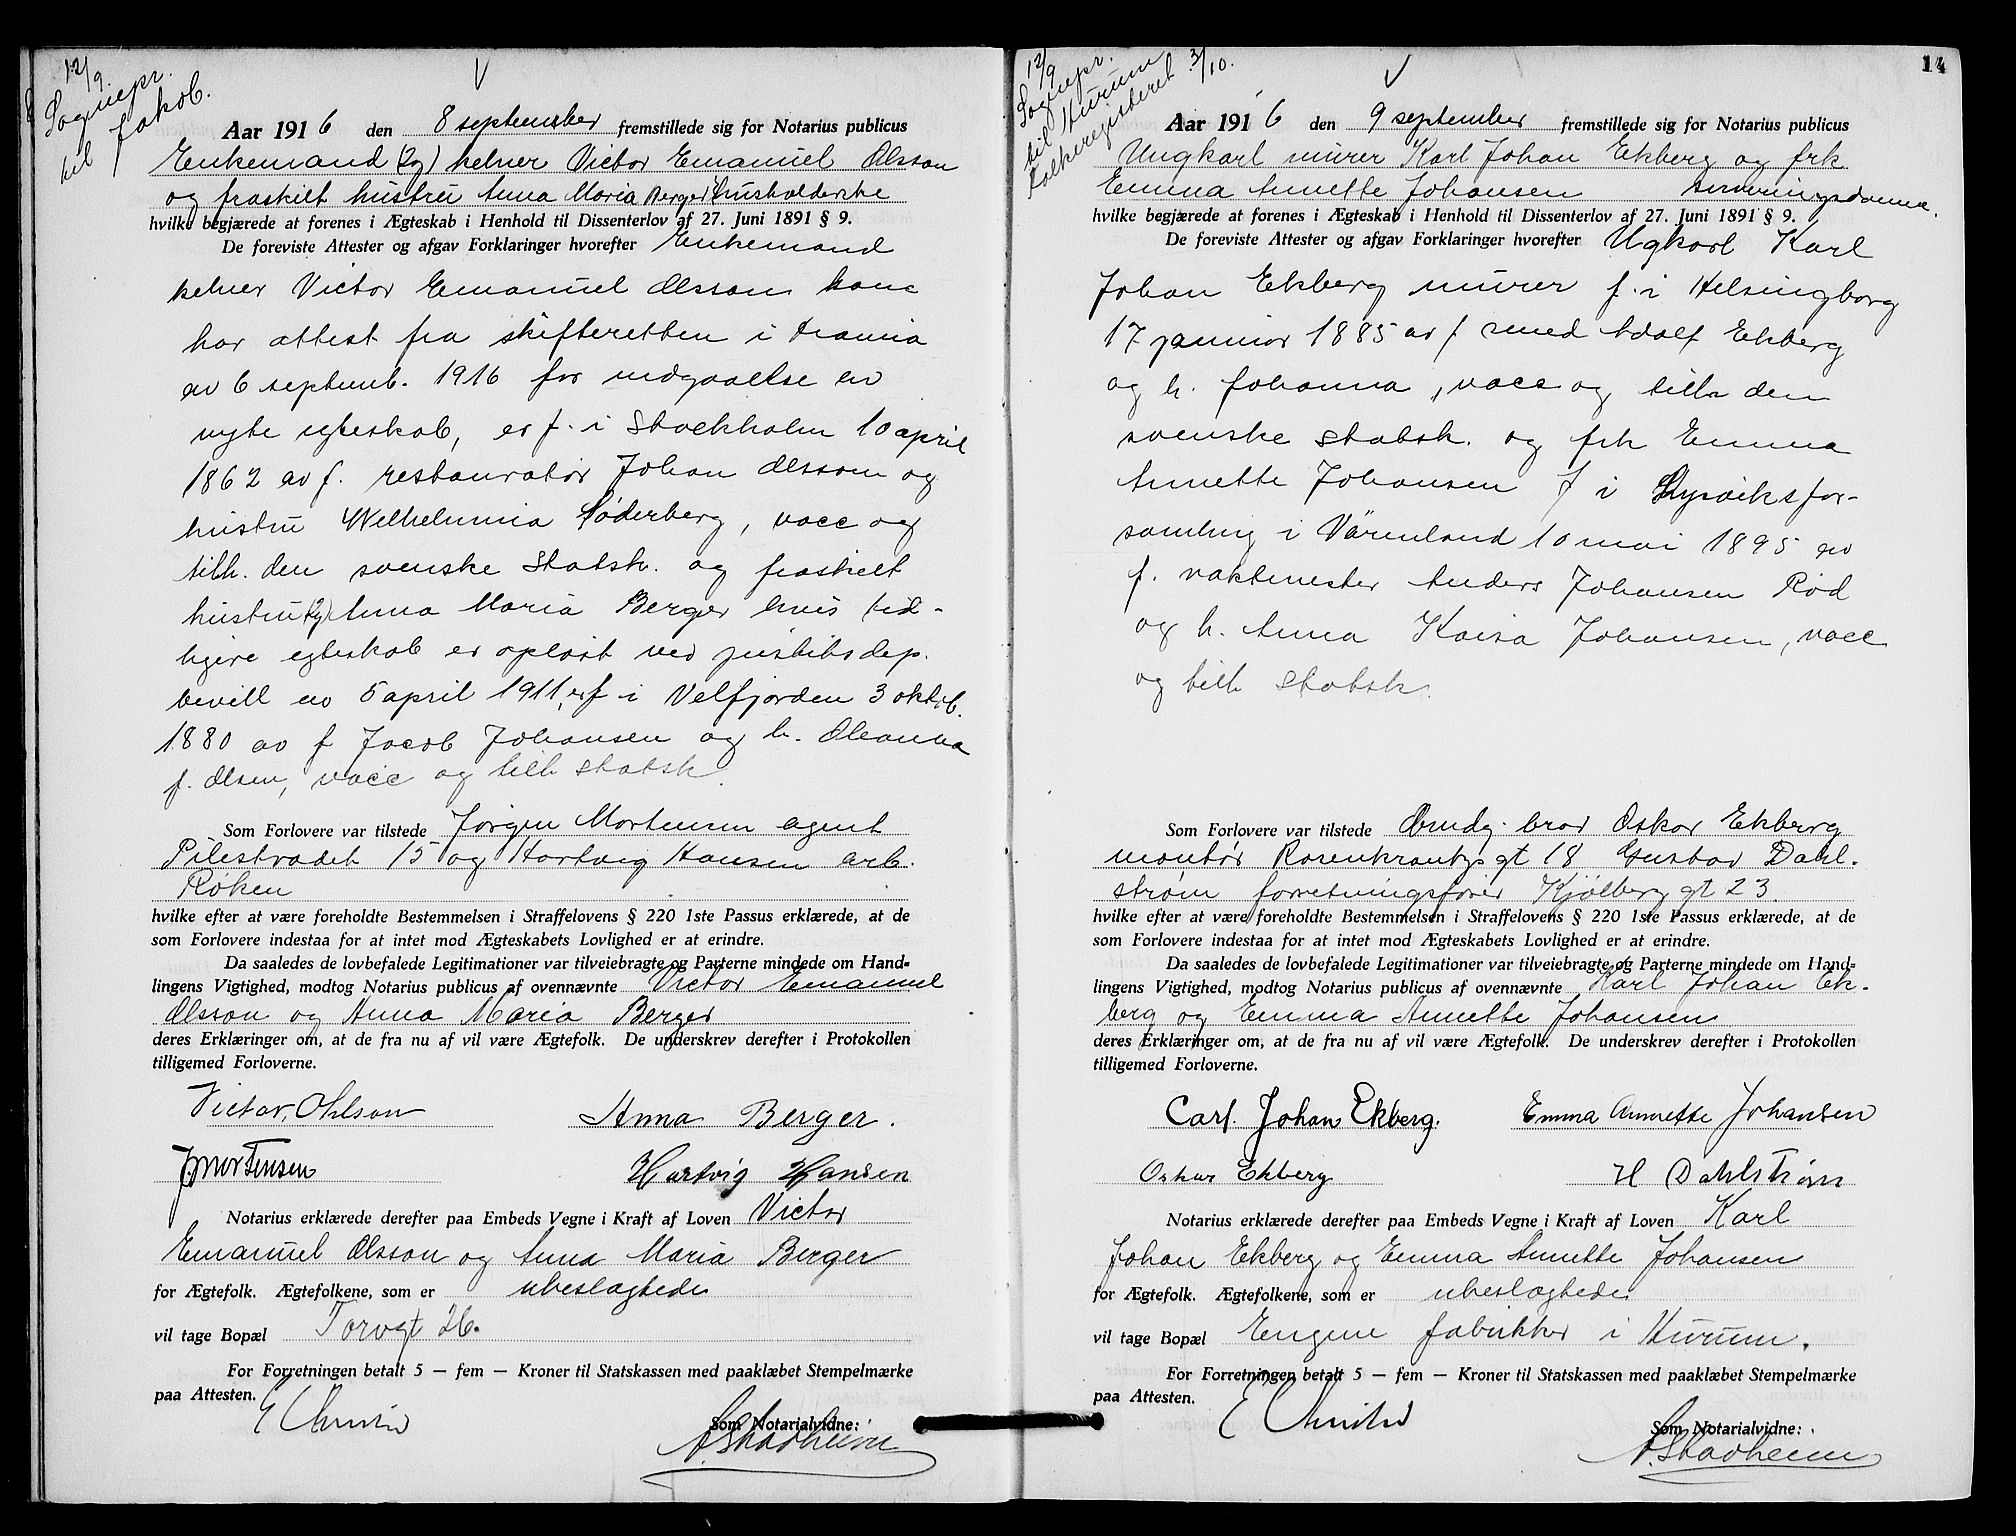 12/9.
Sognepr.
til Jakob.
Aar 1916 den 8 september fremstillede sig for Notarius publicus
Enkemand (2g) kelner Victor Emanuel Olsson
og fraskilt hustru Anna Maria Berger husholderske
hvilke begjærede at forenes i Ægteskab i Henhold til Dissenterlov af 27. Juni 1891 § 9.
De foreviste Attester og afgav Forklaringer hvorefter Enkemand
kelner Victor Emanuel Olsson han
har attest fra skifteretten i Krania
av 6 septemb. 1916 for indgaaelse av
nyt egteskab, er f. i Stockholm 10 april
1862 av f. restauratør Johan Olsson og
hustru Wilhelmina Søderberg, vacc og
tilh. den svenske Statsk. og fraskilt
hustru (2g) Anna Maria Berger hvis tid-
ligere egteskab er opløst ved justitsdep.
bevill av 5 april 1911, er f i Velfjorden 3 oktob.
1880 av f Jacob Johansen og h. Oleanna
f. Olsen, vacc og tilh Statsk.
Som Forlovere var tilstede Jørgen Mortensen agent
Pilestrædet 15 og Hartvig Hansen arb.
Røken
hvilke efter at være foreholdte Bestemmelsen i Straffelovens § 220 1ste Passus erklærede, at de
som Forlovere indestaa for at intet mod Ægteskabets Lovlighed er at erindre.
Da saaledes de lovbefalede Legitimationer var tilveiebragte og Parterne mindede om Hand-
lingens Vigtighed, modtog Notarius publicus af ovennævnte Victor Emanuel
Olsson og Anna Maria Berger
deres Erklæringer om, at de fra nu af vil være Ægtefolk. De underskrev derefter i Protokollen
tilligemed Forloverne.
Victor, Ohlson Anna Berger.
J Mortensen Hartvig Hansen
Notarius erklærede derefter paa Embeds Vegne i Kraft af Loven Victor
Emanuel Olsson og Anna Maria Berger
for Ægtefolk. Ægtefolkene, som er ubeslagtede
vil tage Bopæl Torvgt 26.
For Forretningen betalt 5 — fem — Kroner til Statskassen med paaklæbet Stempelmærke
paa Attesten.
Som Notarialvidne:
A. Stadheim
14
12/9
Sognepr.
til Hurum
Folkeregisteret 3/10.
Aar 1916 den 9 september fremstillede sig for Notarius publicus
Ungkarl murer Karl Johan Ekberg og frk
Emma Annette Johansen serveringsdame.
hvilke begjærede at forenes i Ægteskab i Henhold til Dissenterlov af 27. Juni 1891 § 9.
De foreviste Attester og afgav Forklaringer hvorefter Ugkarl Karl
Johan Ekberg murer f. i Helsingborg
17 januar 1885 av f smed Adolf Ekberg
og h. Johanna, vacc og tilh den
svenske statsk. og frk Emma
Annette Johansen f i Lysviksfor-
samling i Värmland 10 mai 1895 av
f. vaktmester Anders Johansen Röd
og h. Anna Kaisa Johansen, vacc
og tilh Statsk.
Som Forlovere var tilstede Brudg. bror Oskar Ekberg
montør Rosenkrantzgt 18 Gustav Dahl-
strøm forretningsfører Kjølberggt 23.
hvilke efter at være foreholdte Bestemmelsen i Straffelovens § 220 1ste Passus erklærede, at de
som Forlovere indestaa for at intet mod Ægteskabets Lovlighed er at erindre.
Da saaledes de lovbefalede Legitimationer var tilveiebragte og Parterne mindede om Hand-
lingens Vigtighed, modtog Notarius publicus af ovennævnte Karl Johan Ek-
berg og Emma Annette Johansen
deres Erklæringer om, at de fra nu af vil være Ægtefolk. De underskrev derefter i Protokollen
tilligemed Forloverne.
Carl. Johan Ekberg. Emma Annette Johansen
Oskar Ekberg H Dahlstrøm
Notarius erklærede derefter paa Embeds Vegne i Kraft af Loven Karl
Johan Ekberg og Emma Annette Johansen
for Ægtefolk. Ægtefolkene, som er ubeslagtede
vil tage Bopæl Engene fabrikker i Hurum.
For Forretningen betalt 5 — fem — Kroner til Statskassen med paaklæbet Stempelmærke
paa Attesten.
Som Notarialvidne:
A. Stadheim